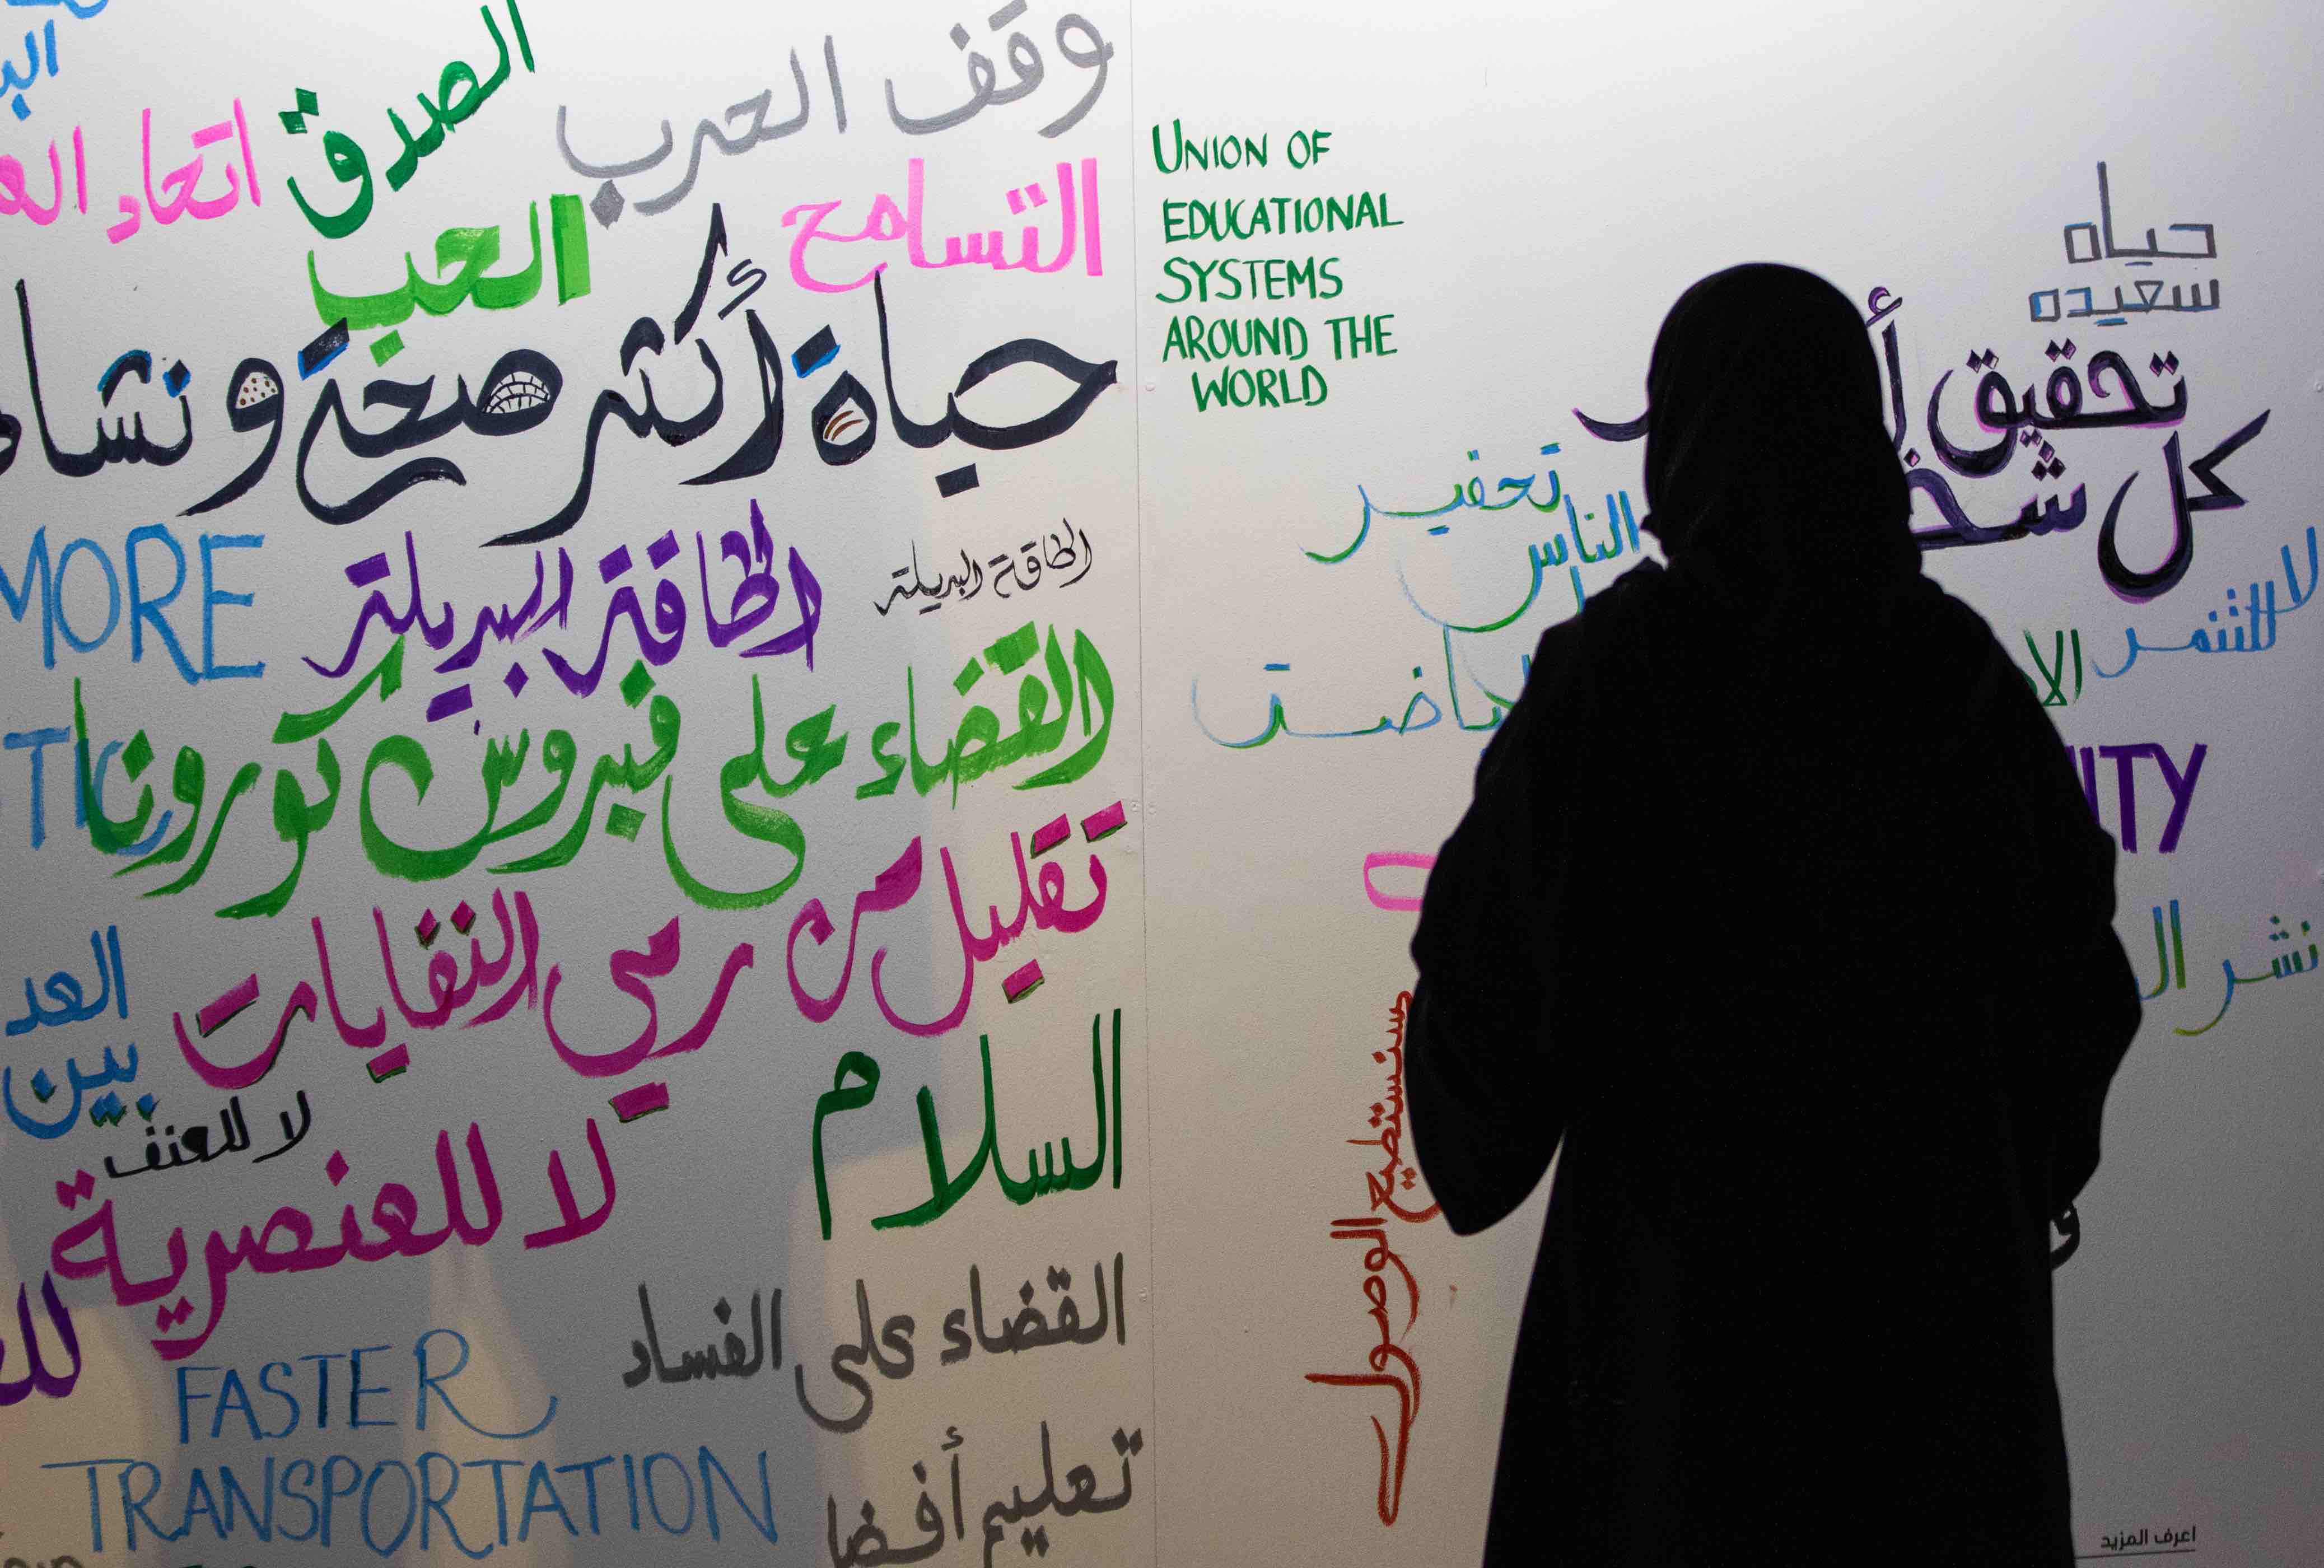 وقف الحرب
الصدق
اتحاد
التسامح
الحب
حياة أكثر صحة و
الطاقة البديلة
الطاقة البديلة
MORE
القضاء على فيروس كورونا
تقليل من رمي النفايات
بين
السلام
لا للعنف
لا للعنصرية
القضاء على الفساد
FASTER
TRANSPORTATION
تعليم
UNION OF
EDUCATIONAL
SYSTEMS
AROUND THE
WORLD
حياه
سعيده
تحقيق
كل
الناس
لا للتنمر
نشر
سنستطيع الوصول
اعرف المزيد